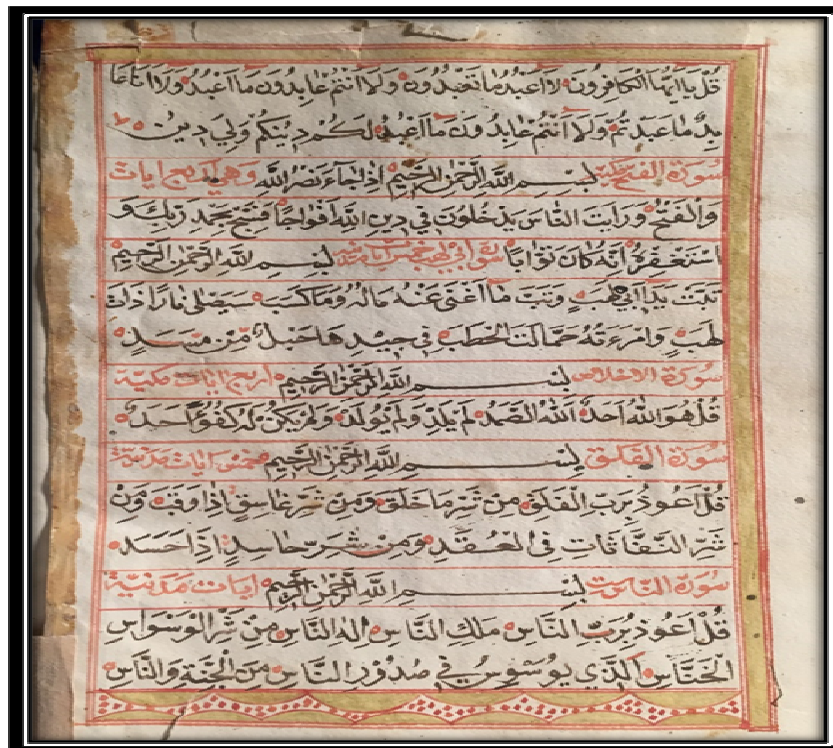 قُلْ يَا اَيُّهَا الْكَافِرُونَ لَا اَعْبُدُ مَا تَعْبُدُونَ وَلَا اَنْتُمْ عَابِدُونَ مَا اَعْبُدُ وَلَا اَنَا عَا
بِدٌ مَا عَبَدْتُمْ وَلَا اَنْتُمْ عَابِدُونَ مَا اَعْبُدُ لَكُمْ دِينُكُمْ وَلِيَ دِينِ
سُورَةُ الفتح مكية بِسْمِ اللّٰهِ الرَّحْمٰنِ الرَّحِيمِ اِذَا جَاءَ نَصْرُ اللّٰهِ وَهِيَ اربع ايات
وَالْفَتْحُ وَرَاَيْتَ النَّاسَ يَدْخُلُونَ فِي دِينِ اللّٰهِ اَفْوَاجًا فَسَبِّحْ بِحَمْدِ رَبِّكَ وَ
اسْتَغْفِرْهُ اِنَّهُ كَانَ تَوَّابًا سورة ابي لهب خمس ايات بِسْمِ اللّٰهِ الرَّحْمٰنِ الرَّحِيمِ
تَبَّتْ يَدَا اَبِي لَهَبٍ وَتَبَّ مَا اَغْنَى عَنْهُ مَالُهُ وَمَا كَسَبَ سَيَصْلٰى نَارًا ذَاتَ
لَهَبٍ وَامْرَءَتُهُ حَمَّالَتَ الْحَطَبِ فِي جِيدِهَا حَبْلٌ مِنْ مَسَدٍ
سُورَةُ الاخلاص بِسْمِ اللّٰهِ الرَّحْمٰنِ الرَّحِيمِ اربع ايات مكية
قُلْ هُوَ اللّٰهُ اَحَدٌ اَللّٰهُ الصَّمَدُ لَمْ يَلِدْ وَلَمْ يُولَدْ وَلَمْ يَكُنْ لَهُ كُفُوًا اَحَدٌ
سُورَةُ الفلق بِسْمِ اللّٰهِ الرَّحْمٰنِ الرَّحِيمِ خمس ايات مدنية
قُلْ اَعُوذُ بِرَبِّ الْفَلَقِ مِنْ شَرِّ مَا خَلَقَ وَمِنْ شَرِّ غَاسِقٍ اِذَا وَقَبَ وَمِنْ
شَرِّ النَّفَّاثَاتِ فِي الْعُقَدِ وَمِنْ شَرِّ حَاسِدٍ اِذَا حَسَدَ
سُورَةُ الناس بِسْمِ اللّٰهِ الرَّحْمٰنِ الرَّحِيمِ ايات مدنية
قُلْ اَعُوذُ بِرَبِّ النَّاسِ مَلِكِ النَّاسِ اِلٰهِ النَّاسِ مِنْ شَرِّ الْوَسْوَاسِ
الْخَنَّاسِ الَّذِي يُوَسْوِسُ فِي صُدُورِ النَّاسِ مِنَ الْجِنَّةِ وَالنَّاسِ